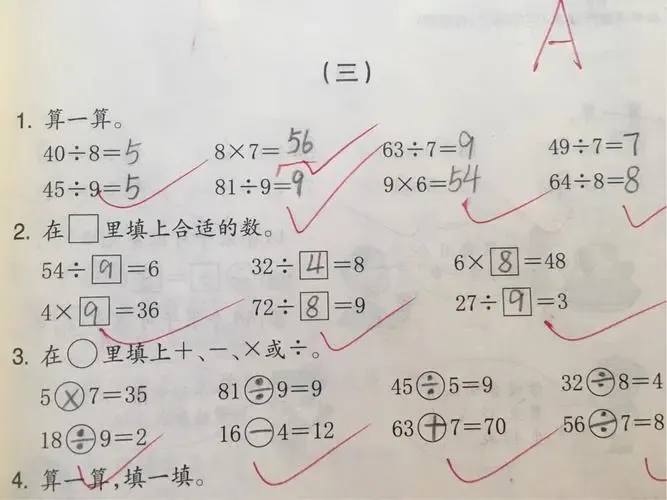 A
(三)
1. 算一算。
40÷8=5 8×7=56 63÷7=9 49÷7=7
45÷9=5 81÷9=9 9×6=54 64÷8=8
2. 在□里填上合适的数。
54÷9=6 32÷4=8 6×8=48
4×9=36 72÷8=9 27÷9=3
3. 在○里填上+、-、×或÷。
5×7=35 81÷9=9 45÷5=9 32÷8=4
18÷9=2 16-4=12 63+7=70 56÷7=8
4. 算一算,填一填。